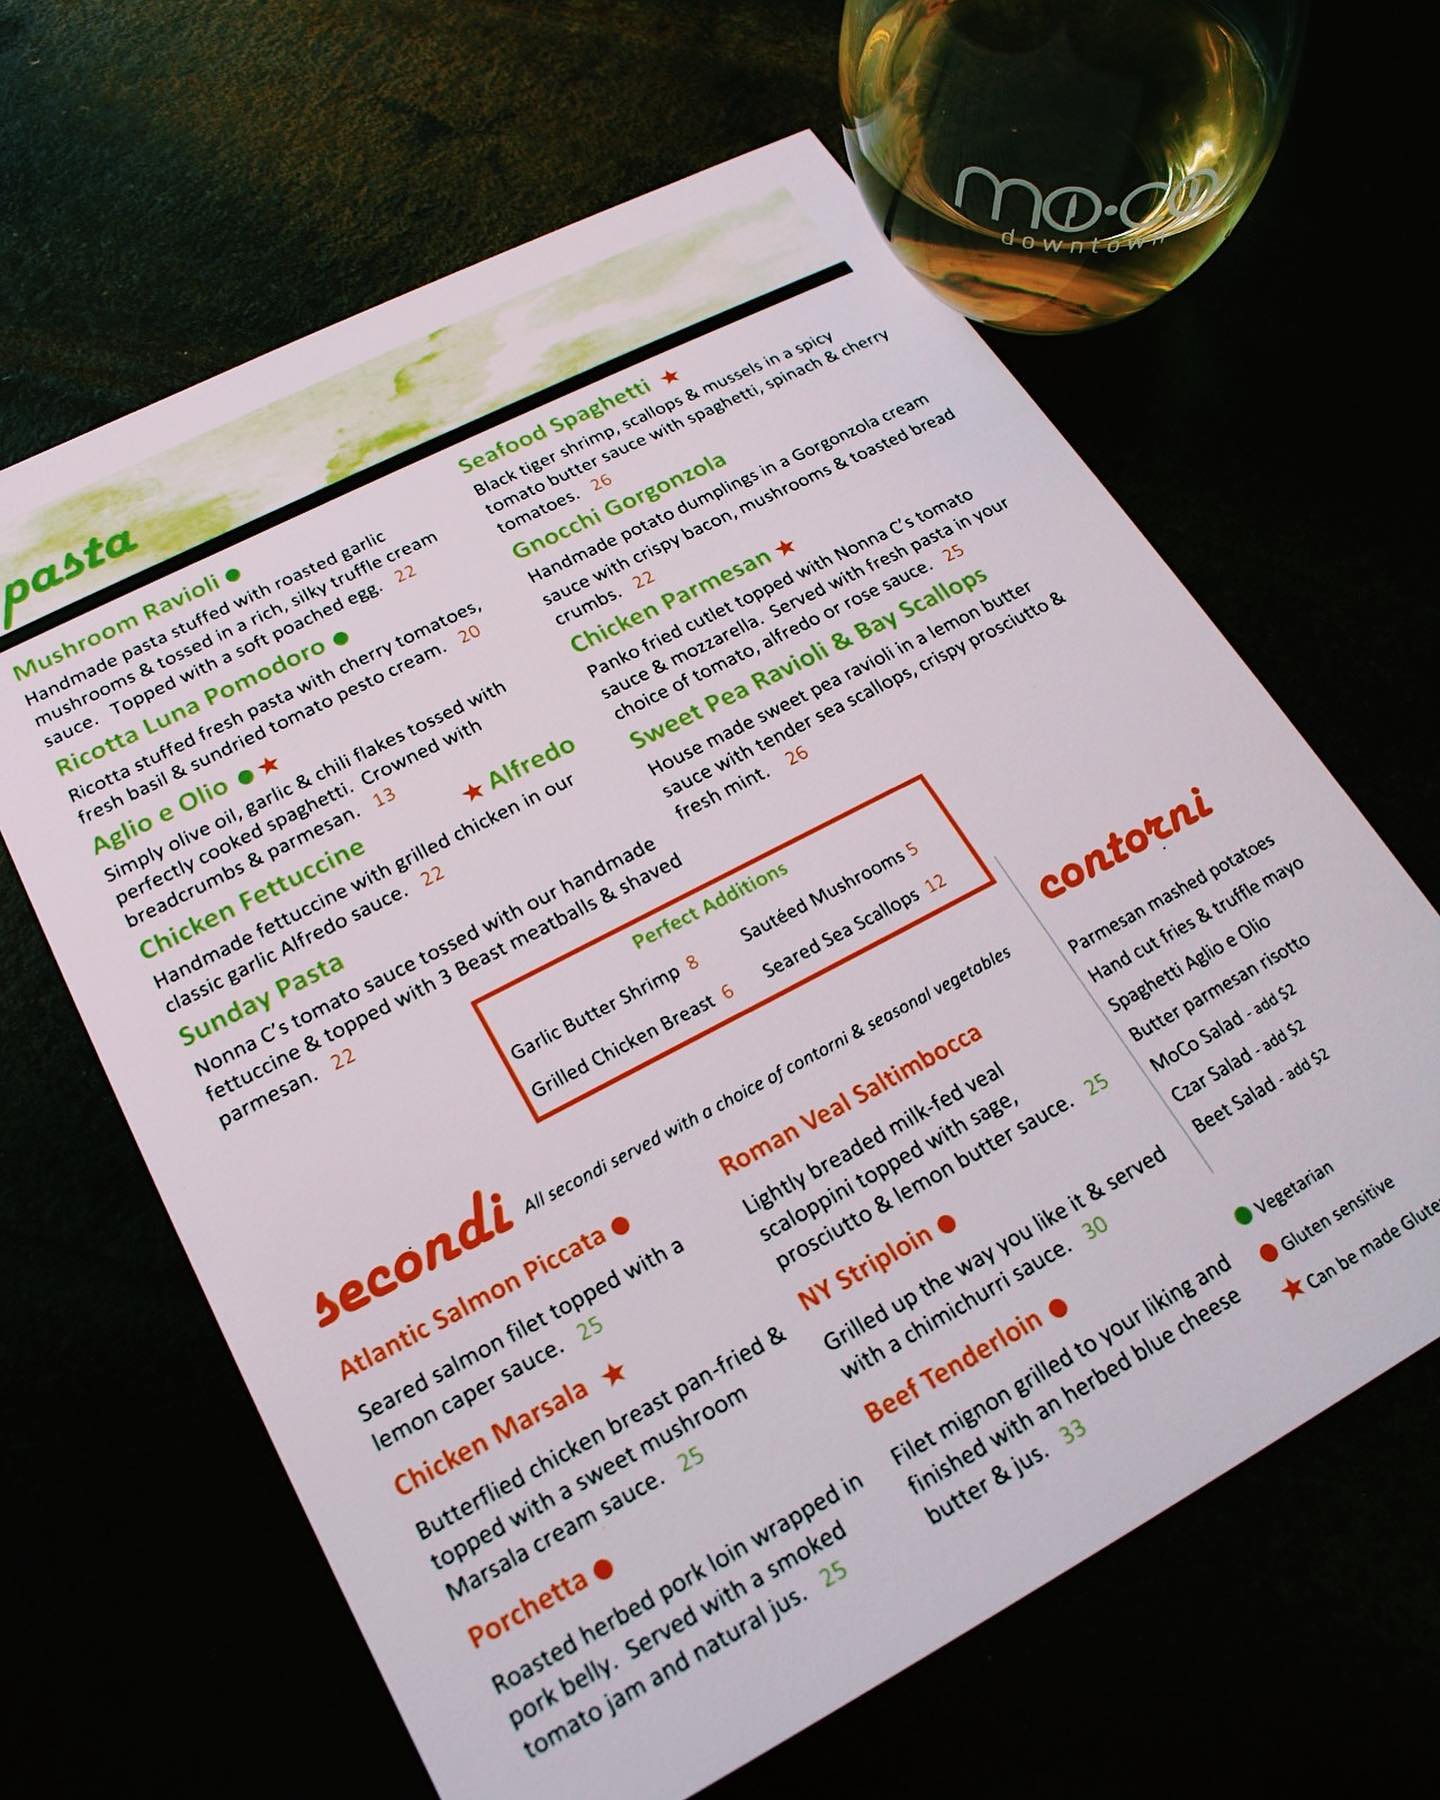 mo·co
downtown
pasta
Mushroom Ravioli
Handmade pasta stuffed with roasted garlic
mushrooms & tossed in a rich, silky truffle cream
sauce. Topped with a soft poached egg. 22
Ricotta Luna Pomodoro
Ricotta stuffed fresh pasta with cherry tomatoes,
fresh basil & sundried tomato pesto cream. 20
Aglio e Olio ★
Simply olive oil, garlic & chili flakes tossed with
perfectly cooked spaghetti. Crowned with
breadcrumbs & parmesan. 13
Chicken Fettuccine ★ Alfredo
Handmade fettuccine with grilled chicken in our
classic garlic Alfredo sauce. 22
Sunday Pasta
Nonna C's tomato sauce tossed with our handmade
fettuccine & topped with 3 Beast meatballs & shaved
parmesan. 22
Seafood Spaghetti ★
Black tiger shrimp, scallops & mussels in a spicy
tomato butter sauce with spaghetti, spinach & cherry
tomatoes. 26
Gnocchi Gorgonzola
Handmade potato dumplings in a Gorgonzola cream
sauce with crispy bacon, mushrooms & toasted bread
crumbs. 22
Chicken Parmesan ★
Panko fried cutlet topped with Nonna C's tomato
sauce & mozzarella. Served with fresh pasta in your
choice of tomato, alfredo or rose sauce. 25
Sweet Pea Ravioli & Bay Scallops
House made sweet pea ravioli in a lemon butter
sauce with tender sea scallops, crispy prosciutto &
fresh mint. 26
Perfect Additions
Garlic Butter Shrimp 8 Sautéed Mushrooms 5
Grilled Chicken Breast 6 Seared Sea Scallops 12
secondi All secondi served with a choice of contorni & seasonal vegetables
Atlantic Salmon Piccata
Seared salmon filet topped with a
lemon caper sauce. 25
Chicken Marsala ★
Butterflied chicken breast pan-fried &
topped with a sweet mushroom
Marsala cream sauce. 25
Porchetta
Roasted herbed pork loin wrapped in
pork belly. Served with a smoked
tomato jam and natural jus. 25
Roman Veal Saltimbocca
Lightly breaded milk-fed veal
scaloppini topped with sage,
prosciutto & lemon butter sauce. 25
NY Striploin
Grilled up the way you like it & served
with a chimichurri sauce. 30
Beef Tenderloin
Filet mignon grilled to your liking and
finished with an herbed blue cheese
butter & jus. 33
contorni
Parmesan mashed potatoes
Hand cut fries & truffle mayo
Spaghetti Aglio e Olio
Butter parmesan risotto
MoCo Salad - add $2
Czar Salad - add $2
Beet Salad - add $2
Vegetarian
Gluten sensitive
★ Can be made Glute